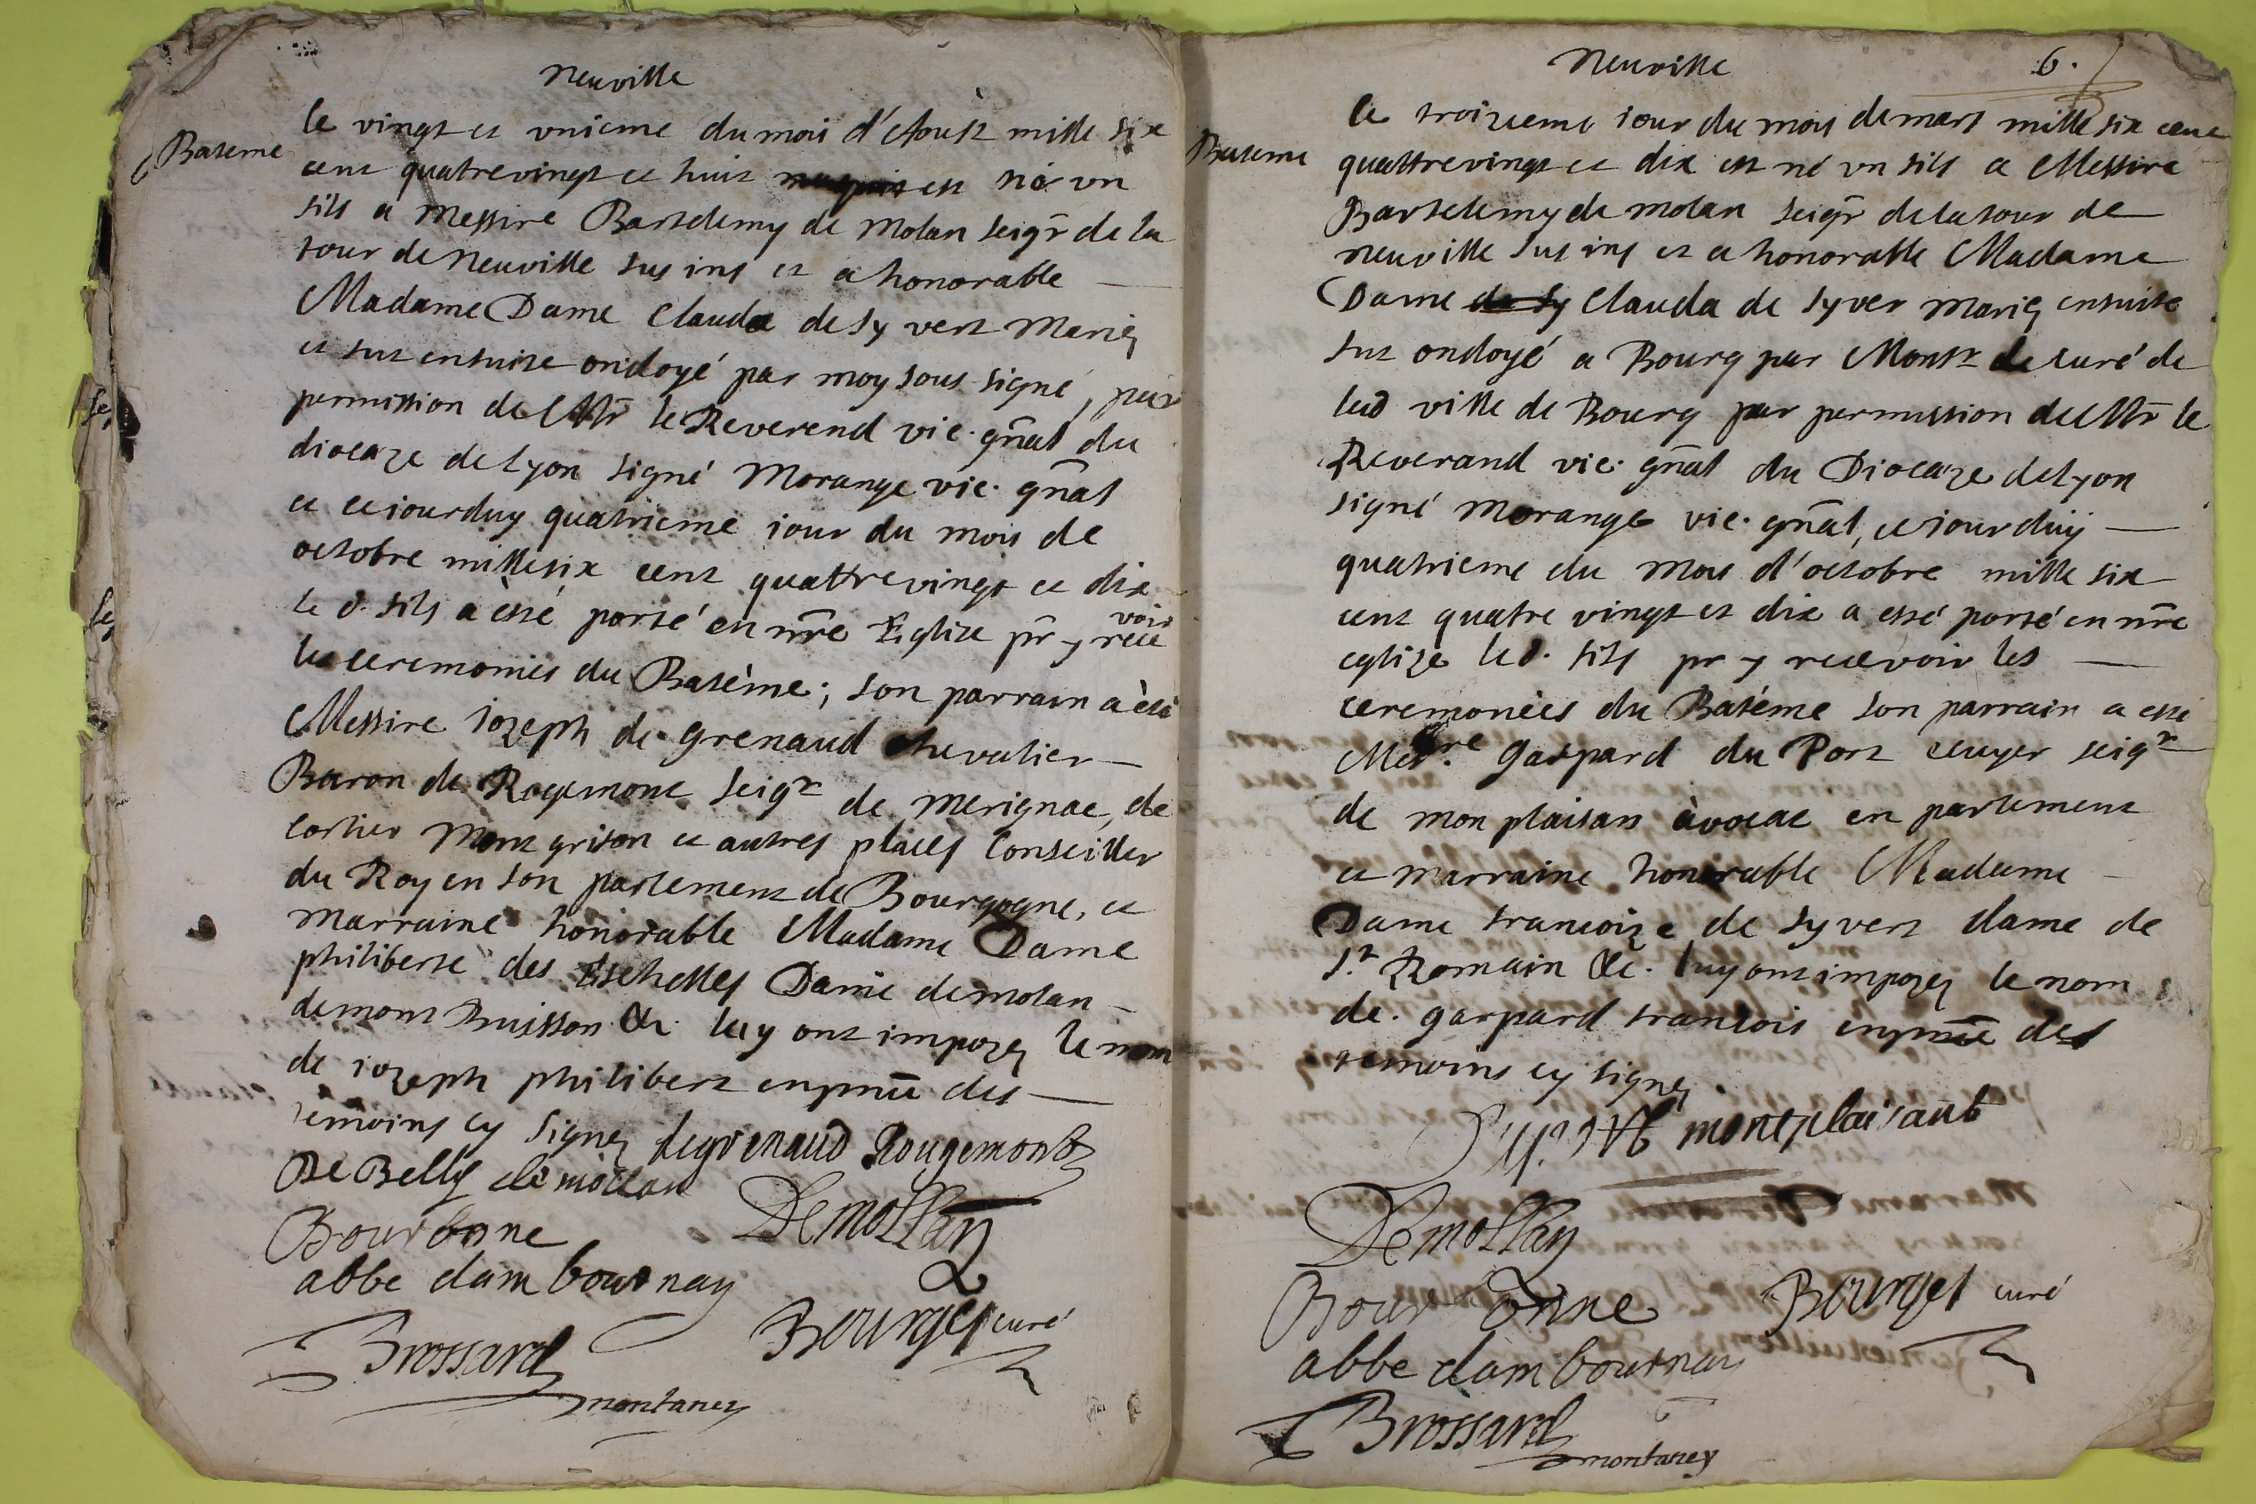 neuville
Bateme
le vingt et unieme du mois d'Aoust mille six
cent quatrevingt et huit est né un
fils a Messire Bartelemy de molan seigr de la
tour de neuville sus ins et a honorable
Madame Dame Clauda de Syvert Mariez
et fut ensuite ondoyé par moy sous signé, par
permission de Mr le Reverend vic. gñal du
diocaze de Lyon signé Morange vic. gñal
et ce iourduy quatrieme iour du mois de
octobre mille six cent quattrevingt et dix
le d. fils a èsté porté en nr̃e Eglize pr y rece
voir
les ceremonies du Batème; son parrain a èsté
Messire iozeph de grenaud chevalier
Baron de Rogemont seigr de merignac, de
corlier Mont griton et autres places Conseiller
du Roy en son parlement de Bourgogne, et
marraine honorable Madame Dame
philiberte des Eschelles Dame de molan
de mont Buisson &c. luy ont impozez le nom
de iozeph philibert en pñce des
temoins cy signez degrenaud Rougemont
De Belly de mollan
Demollan
Bourbonne
abbe dambournay
Bourges curé
Brossard
montanez
neuville
6.
Bateme
le troizieme iour du mois de mars mille six cent
quattrevingt et dix est né un fils a Messire
Bartelemy de molan seigr de la tour de
neuville sus ins et a honorable Madame
Dame de Sy Clauda de Syver Mariez ensuite
fut ondoyé a Bourg par Monsr le curé de
lad ville de Bourg par permission de Mr le
Reverand vic. gñal du Diocaze de Lyon
signé Morange vic. gñal, ce iourduij
quatrieme du mois d'octobre mille six
cent quatre vingt et dix a esté porté en nr̃e
eglize le d. fils pr y recevoir les
ceremonies du Batéme son parrain a esté
Messre. gaspard du Port ecuyer seigr
de mon plaisant àvocat en parlement
et marraine honorable Madame
Dame francoize de Syvert dame de
St. Romain &c. luy ont impozez le nom
de. gaspard francois en pñce des
temoins cy signez
montplaisant
Demollan
Bourbonne
Bourges curé
abbe dambournay
Brossard
montanez